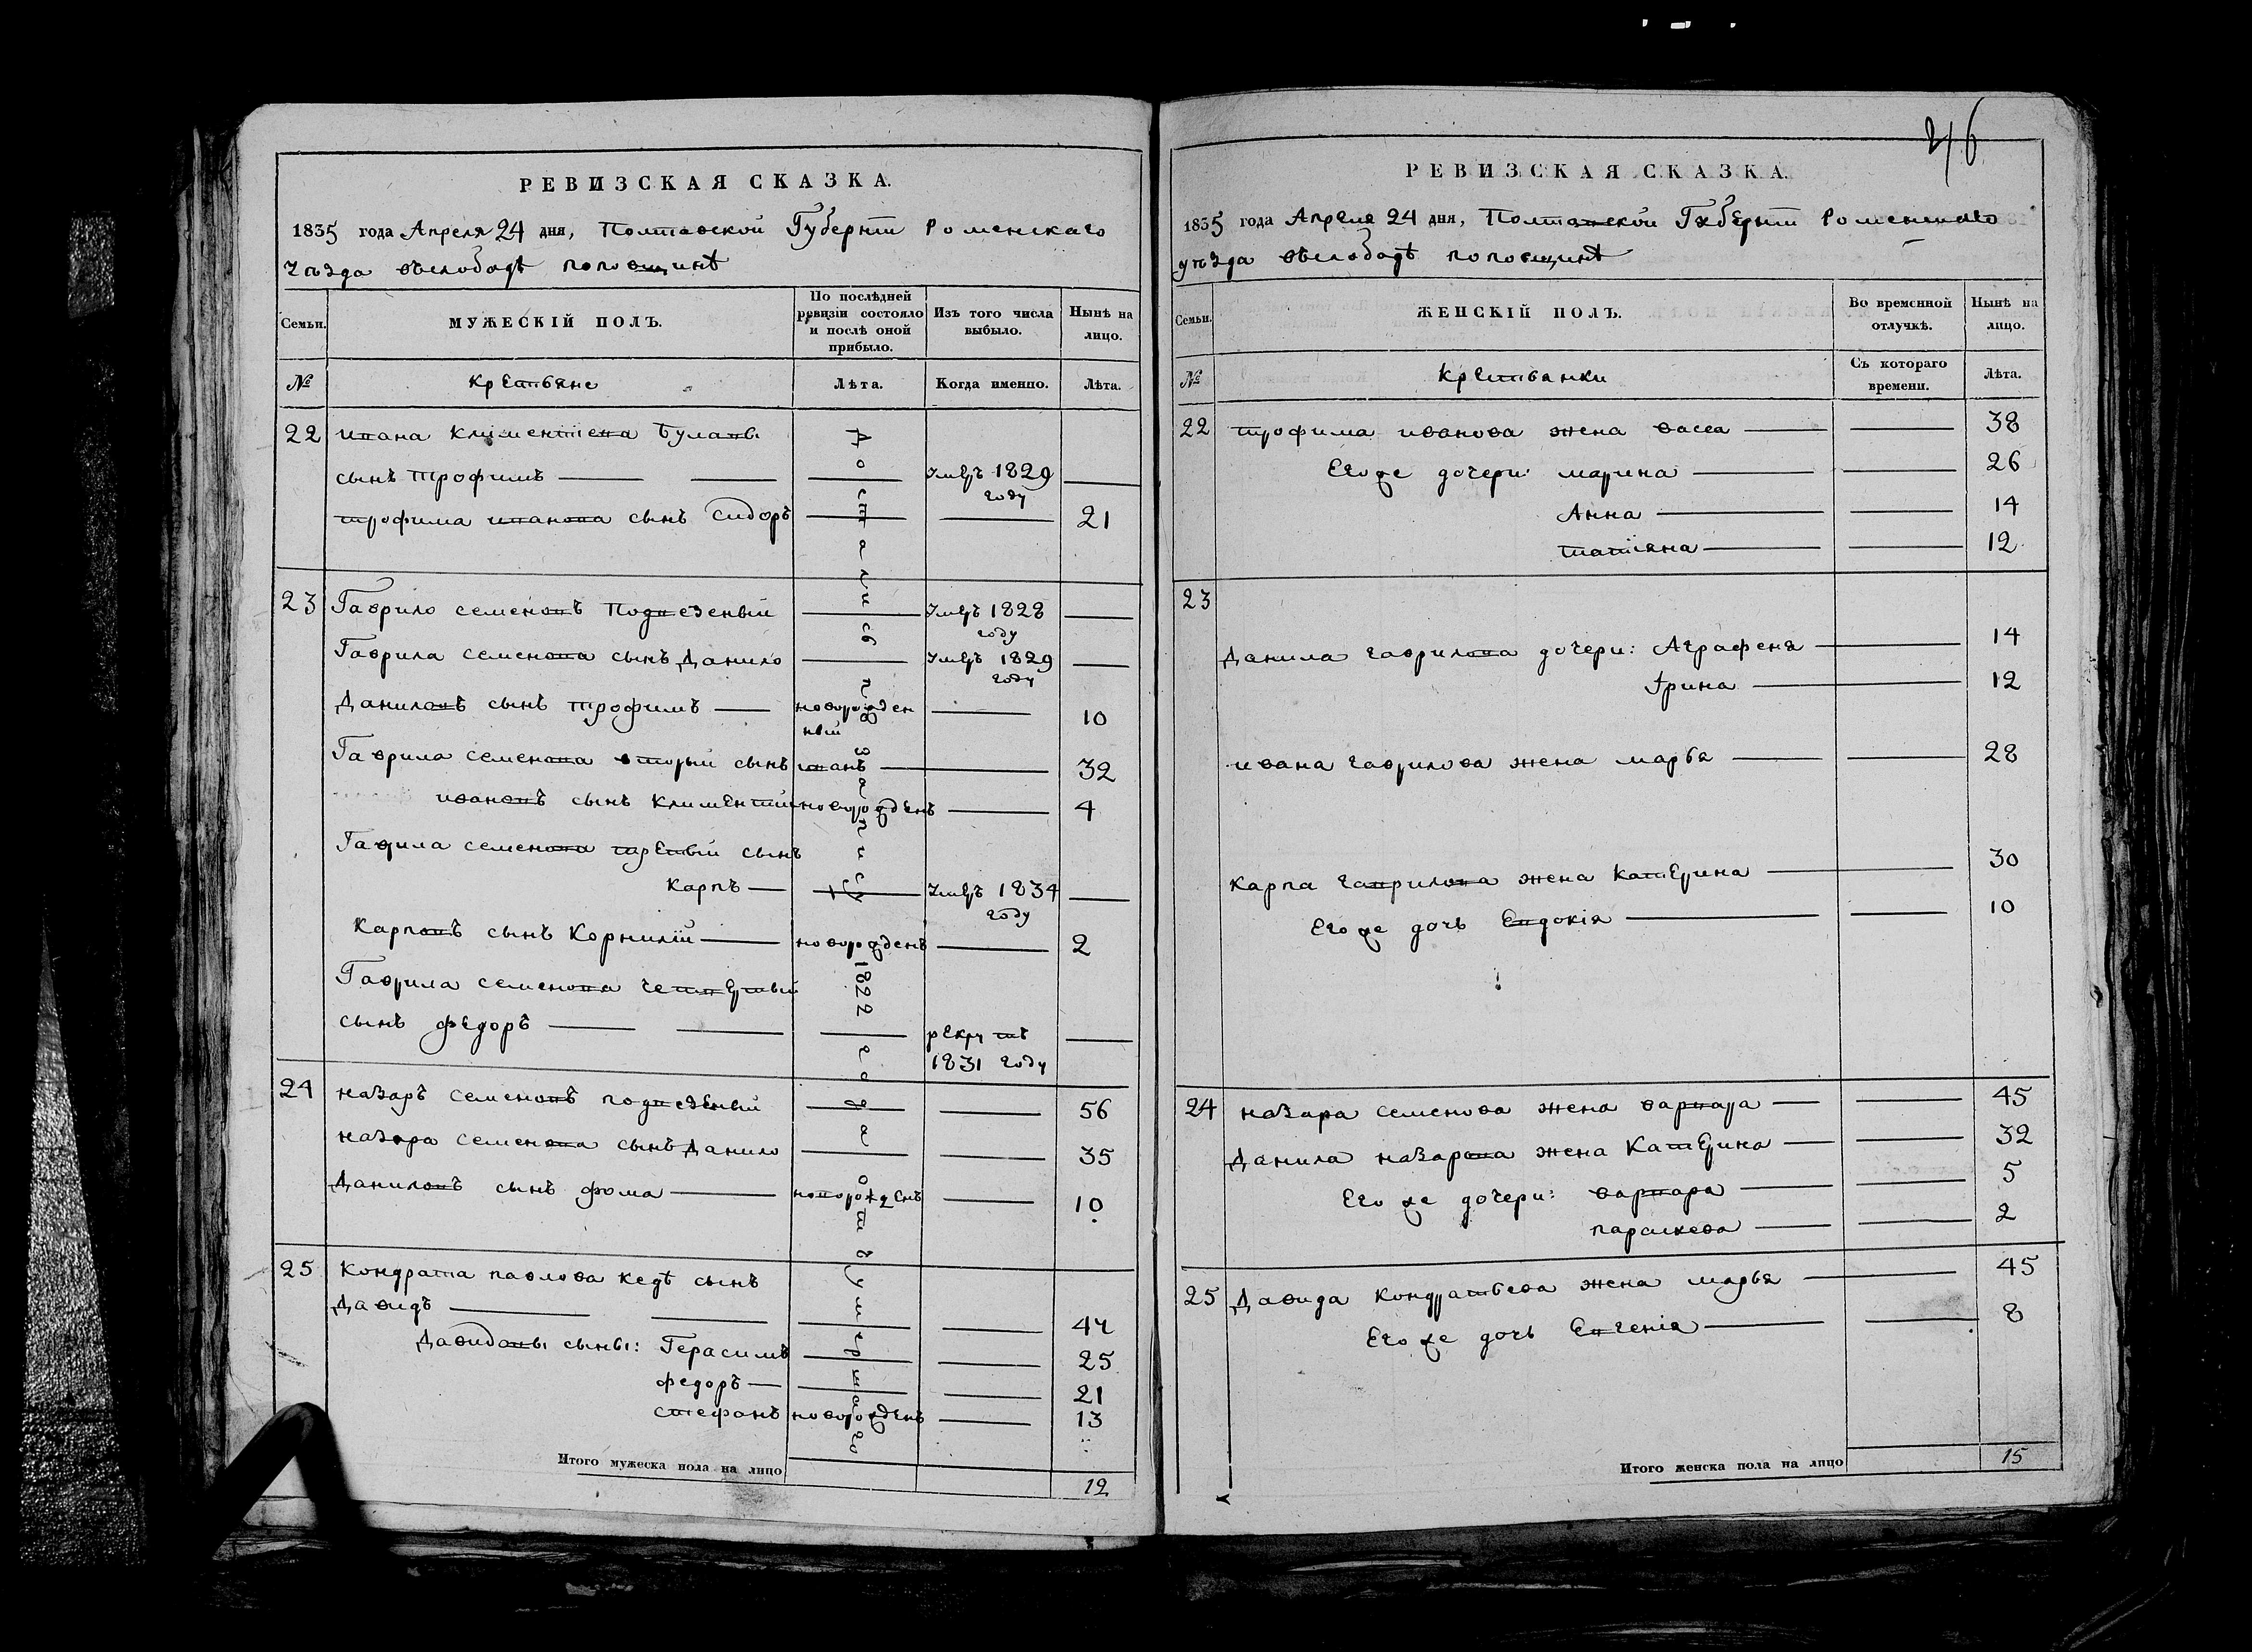 РЕВИЗСКАЯ СКАЗКА.
1835 года Апреля 24 дня, Полтавской Губерніи Роменскаго
уѣзда въслободѣ поповщинѣ
Семьи.
МУЖЕСКІЙ ПОЛЪ.
По послѣдней ревизіи состояло и послѣ оной прибыло.
Изъ того числа выбыло.
Нынѣ на лицо.
№
Крестьяне
Лѣта.
Когда именно.
Лѣта.
22 ивана климентиева сынъ
сынъ трофимъ умеръ 1829 году
трофима иванова сынъ Сидоръ 21
23 Гаврило семеновъ Подвезеный умеръ 1828 году
Гаврила семенова сынъ Данило умеръ 1829 году
Даниловъ сынъ трофимъ новорожденный 10
Гаврила семенова вторый сынъ иванъ 32
ивановъ сынъ климентий новорожденъ 4
Гаврила семенова третьій сынъ
Карпъ умеръ 1834 году
Карповъ сынъ Корнилій новорожденъ 2
Гаврила семенова четвертый
сынъ федоръ рекрутъ 1831 году
24 назаръ семеновъ подвезеный 56
назара семенова сынъ Данило 35
Даниловъ сынъ фома новорожденъ 10
25 Кондрата павлова Кедѣ сынъ
Давидъ 44
Давидовы сыны: Герасимъ 25
федоръ 21
стефанъ новорожденъ 13
1822
Итого мужеска пола на лицо 12
246
РЕВИЗСКАЯ СКАЗКА.
1835 года Апреля 24 дня, Полтавской Губерніи Роменскаго
уѣзда въслободѣ поповщинѣ
Семьи.
ЖЕНСКІЙ ПОЛЪ.
Во временной отлучкѣ.
Нынѣ на лицо.
№
Крестьянки
Съ котораго времени.
Лѣта.
22 трофима иванова жена васса 38
Егоже дочери: марина 26
Анна 14
татіяна 12
23
Данила гаврилова дочери: Аграфена 14
Ірина 12
ивана гаврилова жена марья 28
карпа гаврилова жена катерина 30
Егоже дочь Евдокія 10
24 назара семенова жена варвара 45
Данила назарова жена Катерина 32
Егоже дочери: варвара 5
параскева 2
25 Давида кондратьева жена марья 45
Егоже дочь Евгенія 8
Итого женска пола на лицо 15